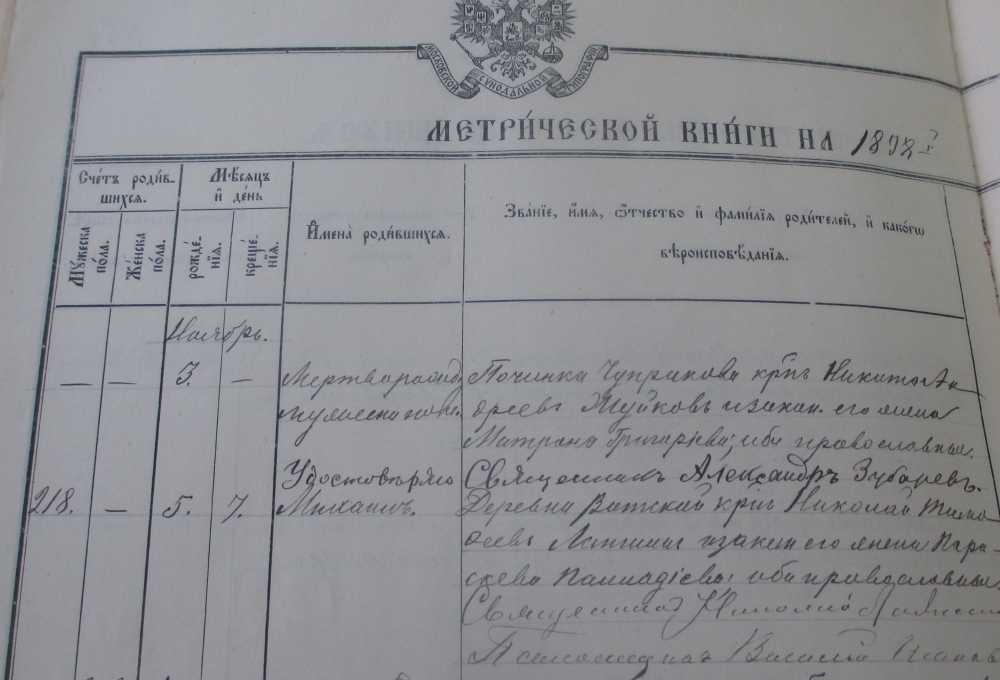 МОСКОВСКОЙ СѴНОДАЛЬНОЙ ТИПОГРАФІИ
МЕТРИ́ЧЕСКОЙ КНИ́ГИ НА 1892
Сче́тъ роди́в-
шихся.
Мѣ́сяцъ
и҆ де́нь
И҆мена̀ роди́вшихся.
Зва́нїе, и҆́мя, ѻ҆́тчество и҆ фами́лїя роди́телей, и҆ како́гѡ
вѣроисповѣ́данїя.
Мꙋ́жеска
по́ла.
Же́нска
по́ла.
рожде́-
нїя.
креще́-
нїя.
Ноябрь.
— — 3. — Мертворожд. Починка Чупракова крнъ Никита Ан
мужеска пол. дреевъ Жуйковъ и закон. его жена
Матрона Григоріева; оба православные.
Удостовѣряю Священникъ Александръ Зубаревъ.
218. — 5. 7. Михаилъ. Деревни Вятский крнъ Николай Тимо
ѳеевъ Лаптинъ и закон его жена Пара-
скева Палладіева; оба православные
Священникъ Николай
Псаломщикъ Василій